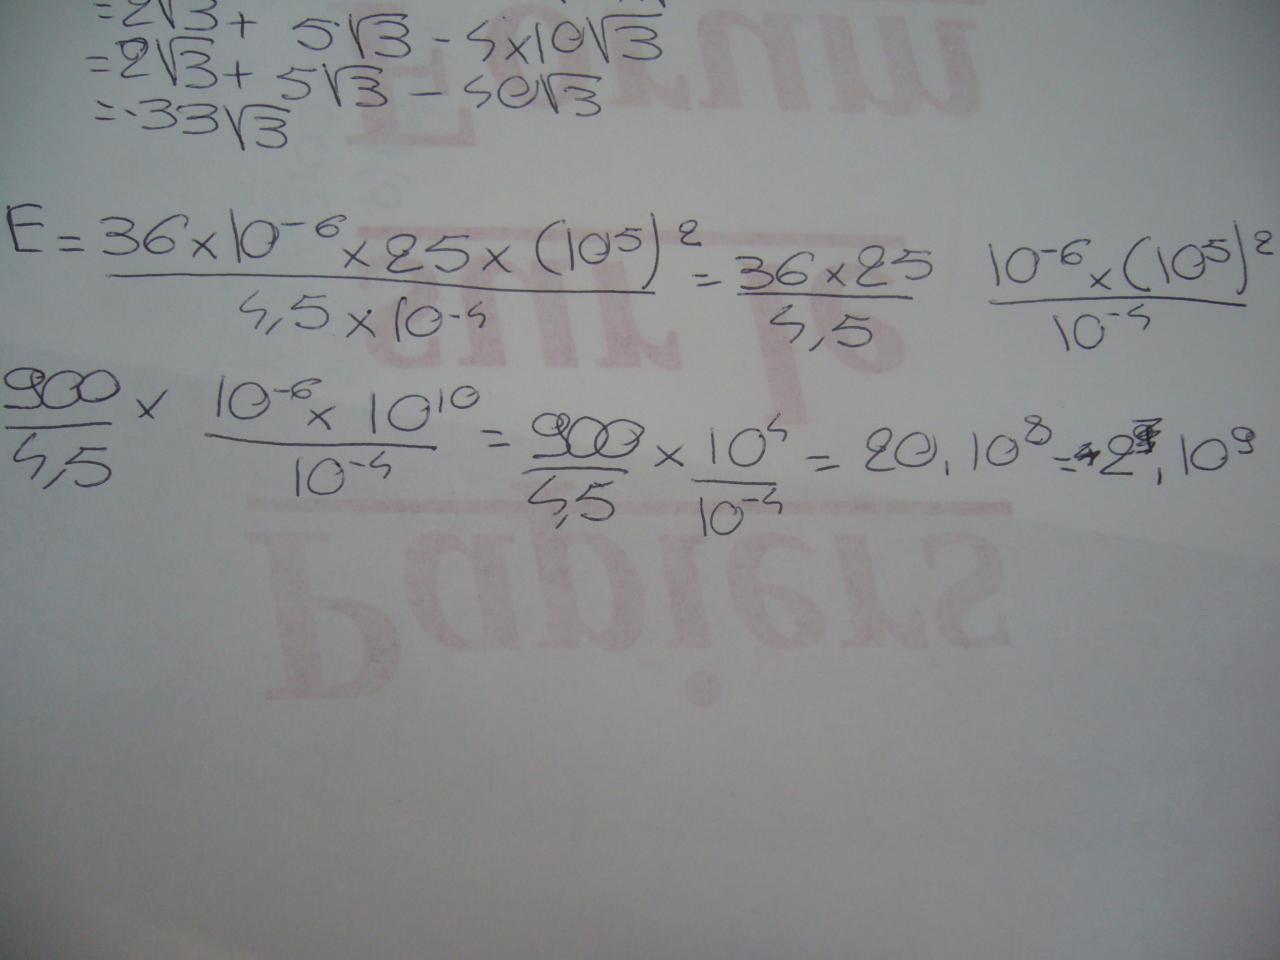 =2√3+ 5√3 - 4×10√3
=2√3+ 5√3 - 40√3
=-33√3
E = 36×10⁻⁶×25×(10⁵)² / 4,5×10⁻⁴ = 36×25 / 4,5 10⁻⁶×(10⁵)² / 10⁻⁴
900 / 4,5 × 10⁻⁶×10¹⁰ / 10⁻⁴ = 900 / 4,5 × 10⁴ / 10⁻⁴ = 20.10⁸ = 2.10⁹
Papiers